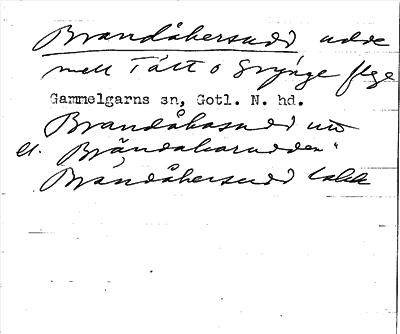 Brandåkersudd udde
mell Tätt o Grynge flge
Gammelgarns sn, Gotl. N. hd.
Brandåkasudd
el. Brändakarudden"
Brandåkersudd